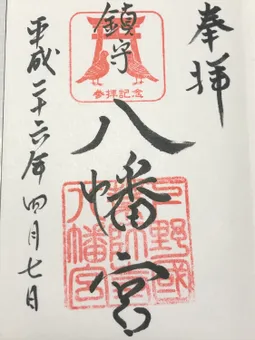 奉拝
鎮守
参拝記念
八幡宮
平成二十六年四月七日